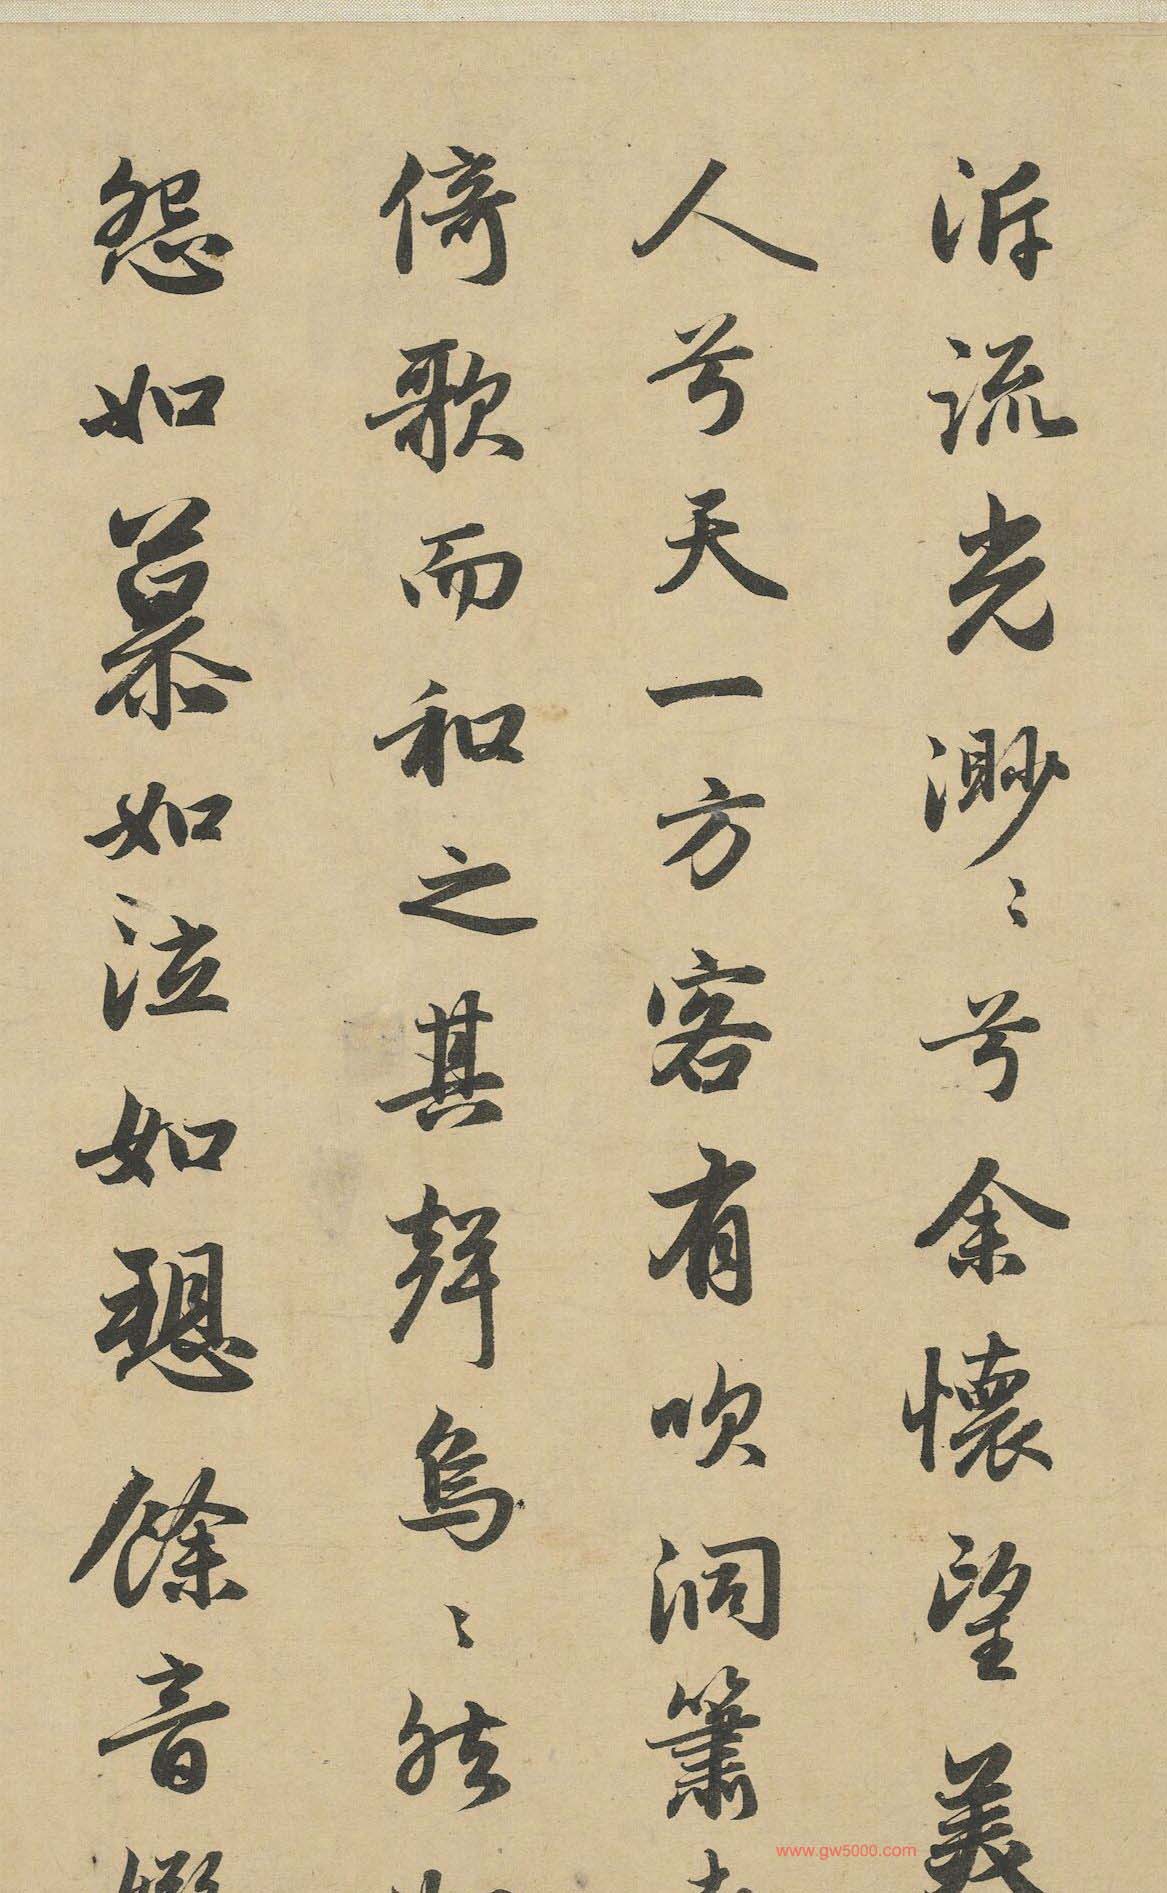 泝流光渺〻兮余懷望美
人兮天一方客有吹洞簫
倚歌而和之其聲烏〻然
怨如慕如泣如愬餘音
www.gw5000.com